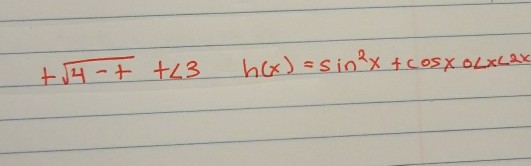 t√4-t t<3 h(x) = sin²x + cosx 0<x<2x